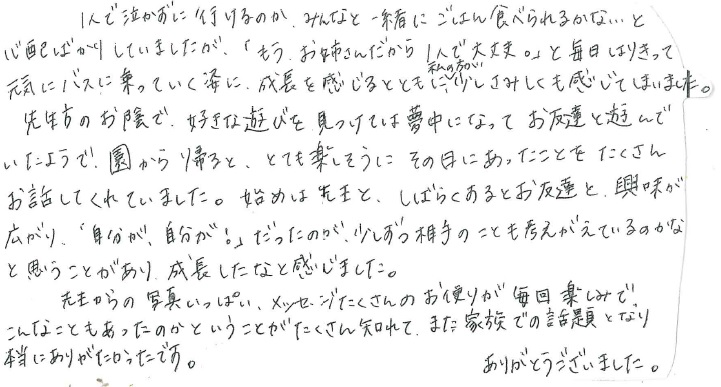 1人で泣かずに行けるのか、みんなと一緒にごはん食べられるかな…と
心配ばかりしていましたが、「もう、お姉さんだから1人で大丈夫。」と毎日はりきって
元気にバスに乗っていく姿に、成長を感じるとともに私の方が少しさみしくも感じてしまいました。
先生方のお陰で、好きな遊びを見つけては夢中になってお友達と遊んで
いたようで、園から帰ると、とても楽しそうにその日にあったことをたくさん
お話してくれていました。始めは先生と、しばらくあるとお友達と、興味が
広がり、「自分が、自分が!」だったのが、少しずつ相手のことも考えがえているのかな
と思うことがあり、成長したなと感じました。
先生からの写真いっぱい、メッセージたくさんのお便りが毎回楽しみで
こんなこともあったのかということがたくさん知れて、また家族での話題となり
本当にありがたかったです。
ありがとうございました。